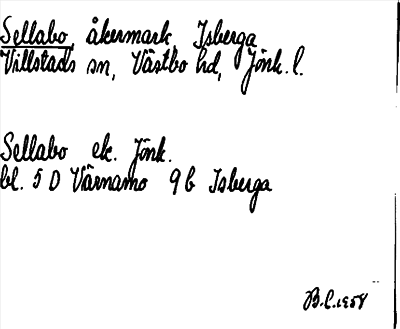 Sellabo, åkermark, Isberga
Villstads sn, Västbo hd, Jönk. l.
Sellabo ek. Jönk.
bl. 5 D Värnamo 9 b Isberga
B.L. 1958